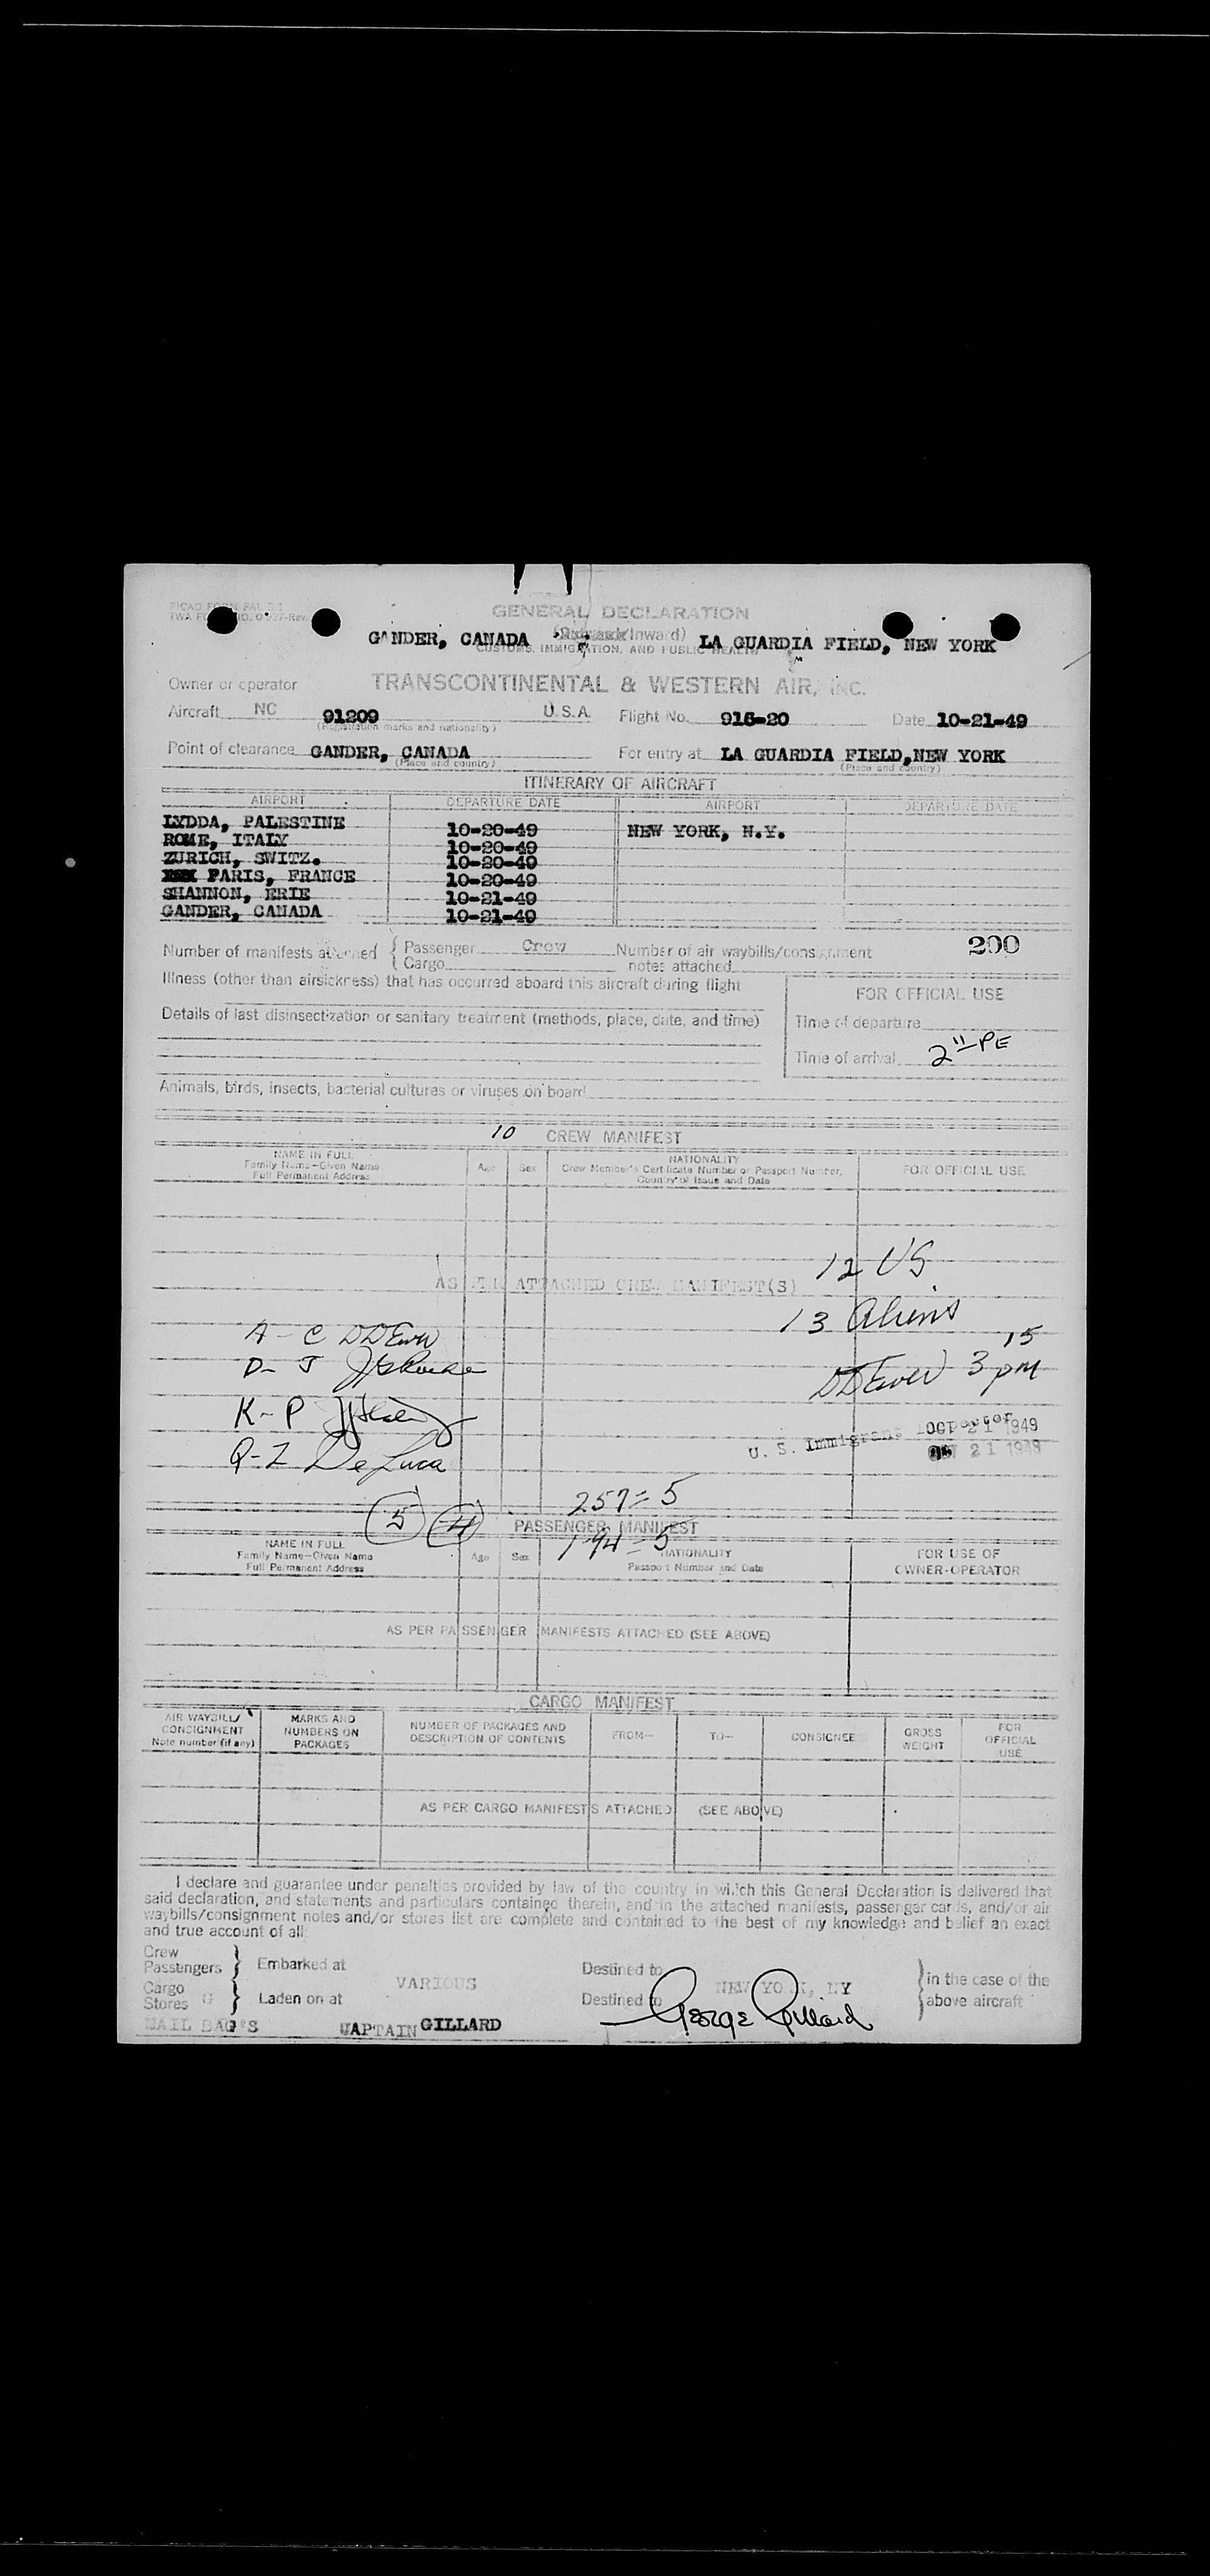 GENERAL DECLARATION
GANDER, CANADA Inward) LA GUARDIA FIELD, NEW YORK
CUSTOMS, IMMIGRATION, AND PUBLIC HEALTH
Owner or operator TRANSCONTINENTAL & WESTERN AIR, INC.
Aircraft NC 91209 U.S.A. Flight No. 916-20 Date 10-21-49
(Registration marks and nationality)
Point of clearance GANDER, CANADA For entry at LA GUARDIA FIELD,NEW YORK
(Place and country) (Place and country)
ITINERARY OF AIRCRAFT
AIRPORT DEPARTURE DATE AIRPORT DEPARTURE DATE
LYDDA, PALESTINE 10-20-49 NEW YORK, N.Y.
ROME, ITALY 10-20-49
ZURICH, SWITZ. 10-20-49
PARIS, FRANCE 10-20-49
SHANNON, ERIE 10-21-49
GANDER, CANADA 10-21-49
200
Number of manifests attached { Passenger Crew Number of air waybills/consignment
{ Cargo notes attached
Illness (other than airsickness) that has occurred aboard this aircraft during flight
FOR OFFICIAL USE
Details of last disinsectization or sanitary treatment (methods, place, date, and time)
Time of departure
Time of arrival 2 11 PE
Animals, birds, insects, bacterial cultures or viruses on board
10 CREW MANIFEST
NAME IN FULL
Family Name—Given Name
Full Permanent Address
Age Sex
NATIONALITY
Crew Member's Certificate Number or Passport Number,
Country of Issue and Date
FOR OFFICIAL USE
12 US
AS PER ATTACHED CREW MANIFEST(S)
13 Aliens
A - C
D - J
3 15 pm
K - P
U. S. Immigrant Inspector
OCT 21 1949
OCT 21 1949
Q-Z De Luca
257=5
5 4
PASSENGER MANIFEST
194=5
NAME IN FULL
Family Name—Given Name
Full Permanent Address
Age Sex
NATIONALITY
Passport Number and Date
FOR USE OF
OWNER-OPERATOR
AS PER PASSENGER MANIFESTS ATTACHED (SEE ABOVE)
CARGO MANIFEST
AIR WAYBILL/
CONSIGNMENT
Note number (if any)
MARKS AND
NUMBERS ON
PACKAGES
NUMBER OF PACKAGES AND
DESCRIPTION OF CONTENTS
FROM— TO— CONSIGNEE
GROSS
WEIGHT
FOR
OFFICIAL
USE
AS PER CARGO MANIFESTS ATTACHED (SEE ABOVE)
I declare and guarantee under penalties provided by law of the country in which this General Declaration is delivered that
said declaration, and statements and particulars contained therein, and in the attached manifests, passenger cards, and/or air
waybills/consignment notes and/or stores list are complete and contained to the best of my knowledge and belief an exact
and true account of all:
Crew
Passengers } Embarked at Destined to
VARIOUS NEW YORK, NY
Cargo
Stores } Laden on at Destined to
} in the case of the
above aircraft
MAIL BAG'S CAPTAIN GILLARD George Gillard